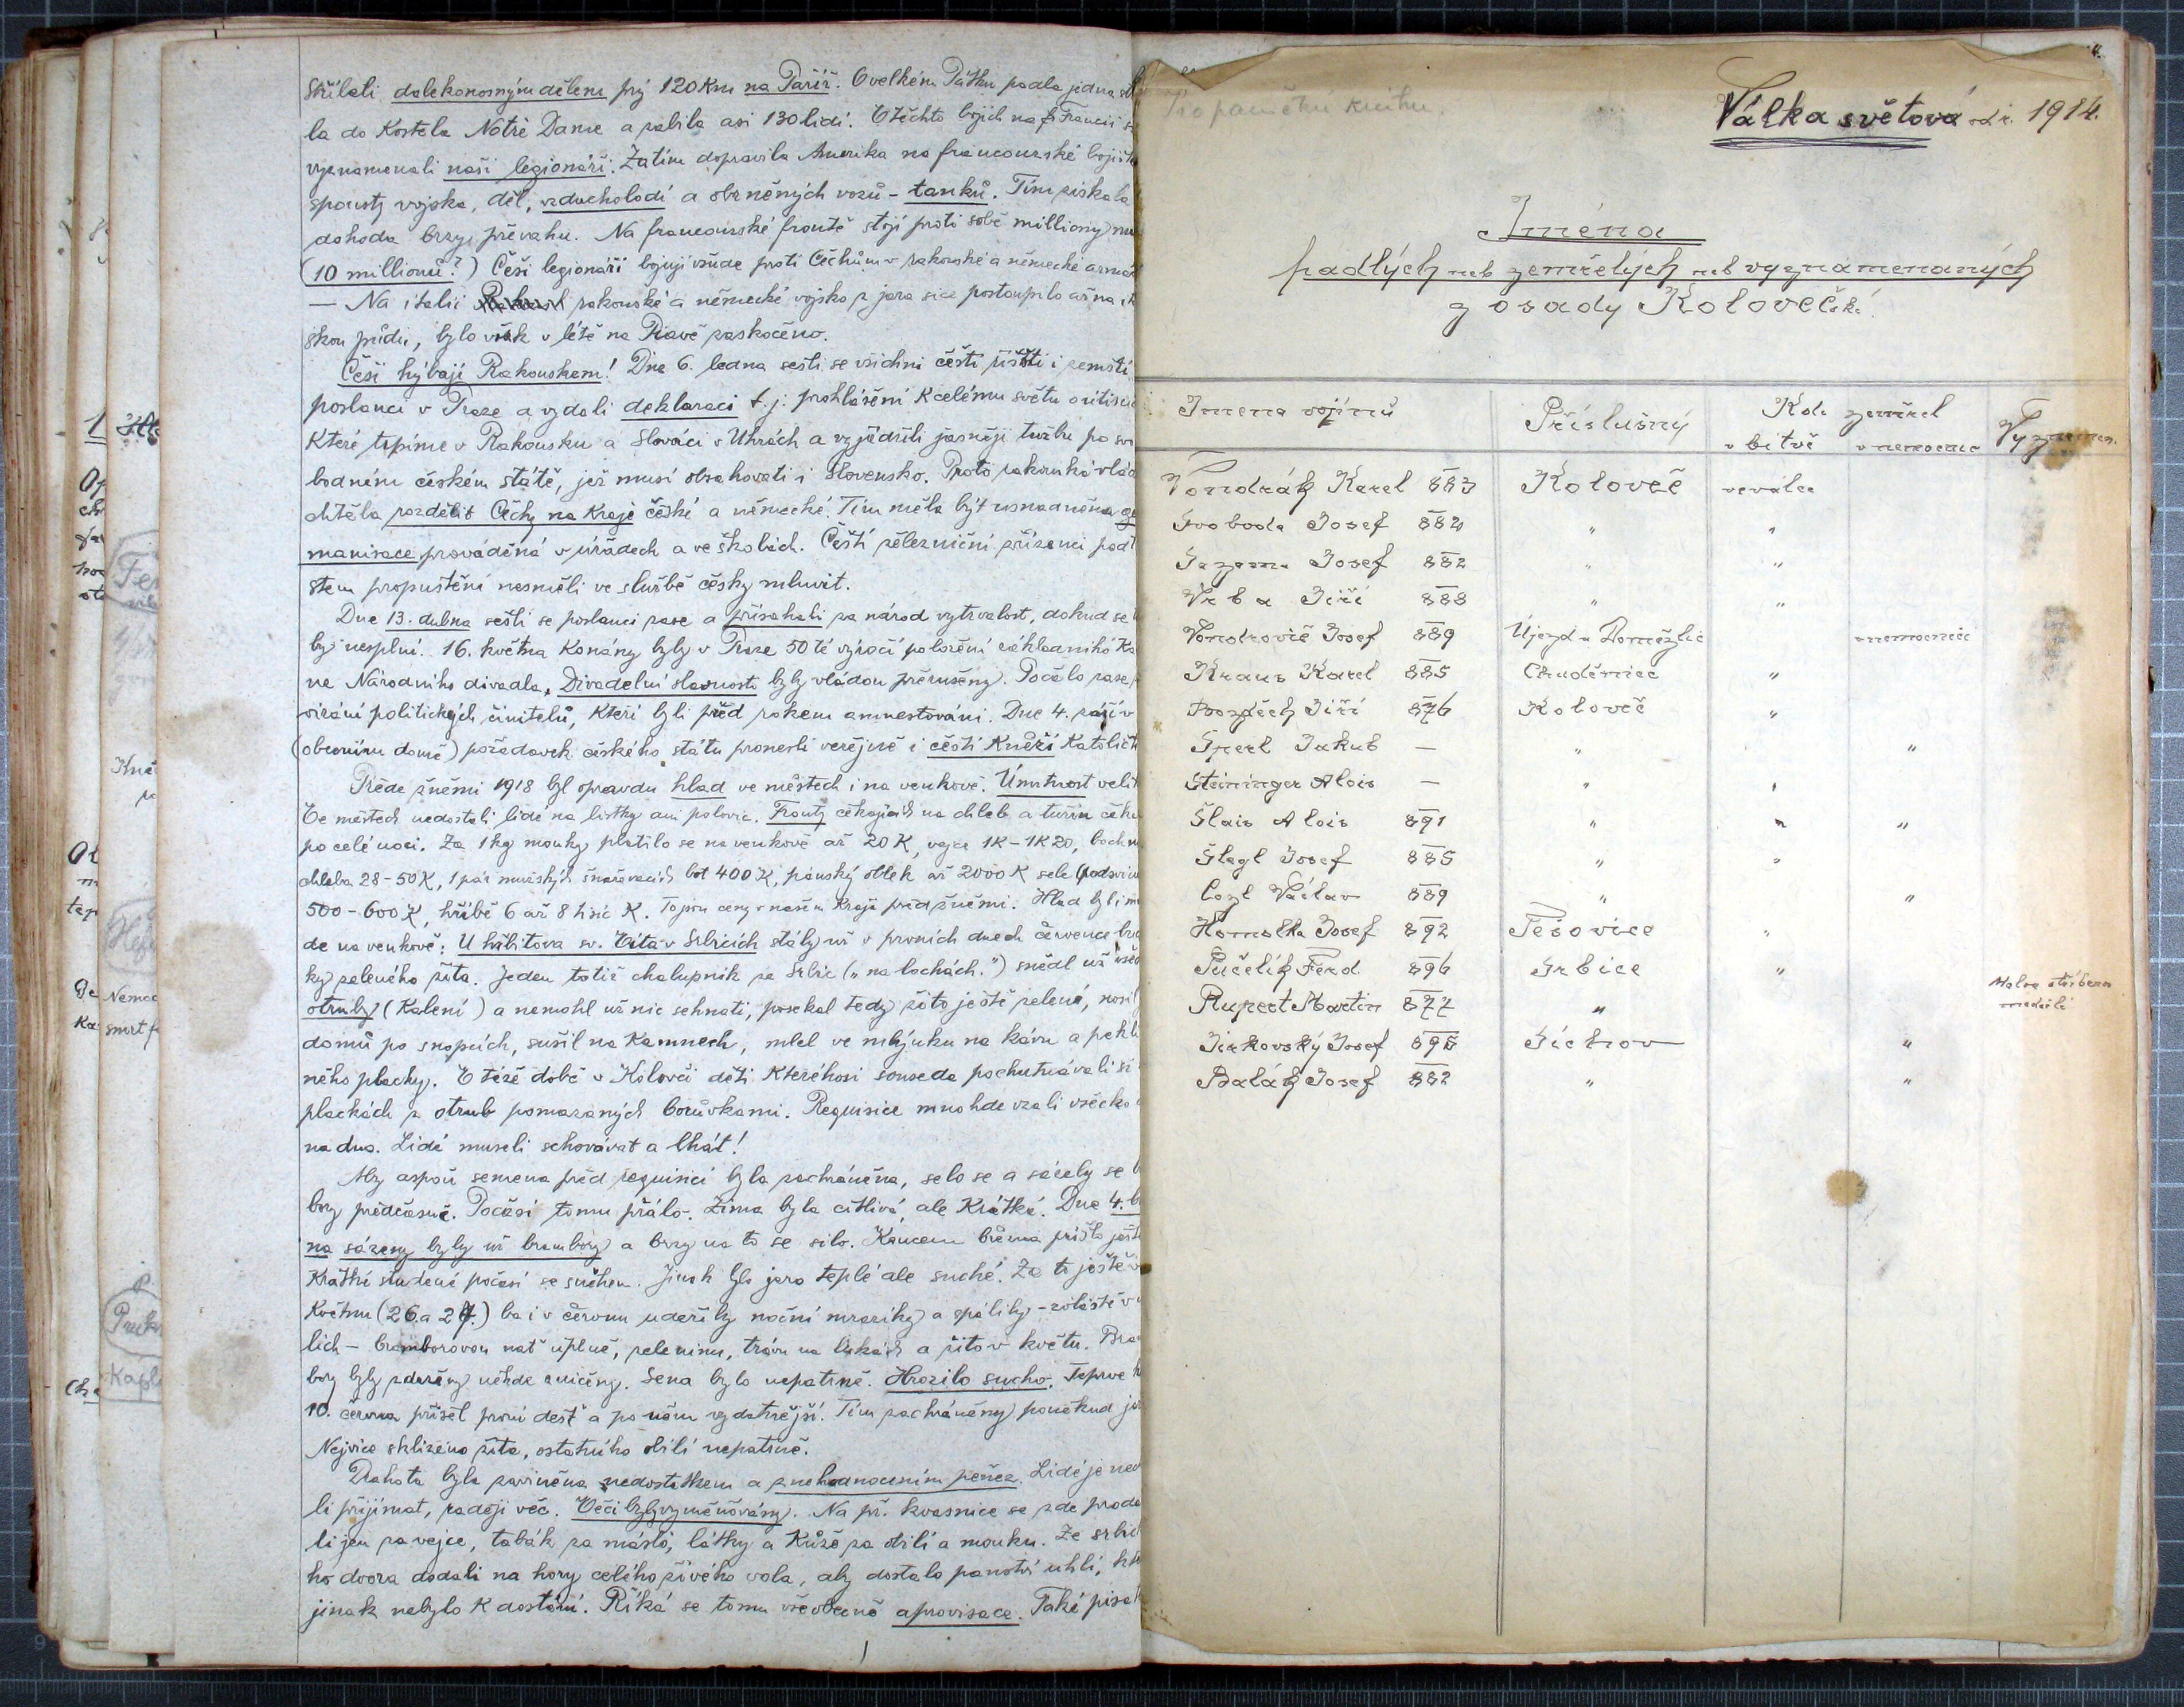 stříleti dalekonosným dělem prý 120 Km na Paříž. O velkém Pátku padla jedna
la do Kostela Notrê Dame a zabila asi 130 lidí. V těchto bojích na Francii
vyznamenali naši legionáři. Zatím dopravila Amerika na francouzské bojiště
spousty vojska, děl, vzducholodí a obrněných vozů – tanků. Tím získala
dohoda brzy převahu. Na francouzské frontě stojí proti sobě milliony
(10 millionů?) Češi legionáři bojují všude proti Čechům v rakouské a německé armádě
— Na italii rakouské a německé vojsko z jara sice postoupilo až na
skou půdu, bylo však v létě na Piavě zaskočeno.
Češi hýbají Rakouskem! Dne 6. ledna sešli se všichni čeští říšští i zemští
poslanci v Praze a vydali deklaraci t. j. prohlášení K celému světu o útisku
Které trpíme v Rakousku a Slováci v Uhrách a vyjádřili jasněji tužbu po svo
bodném českém státě, jež musí obsahovati i Slovensko. Proto rakouská vláda
chtěla rozdělit Čechy na Kraje české a německé. Tím měla být usnadněna ger
manisace prováděná v úřadech a ve školách. Čeští železniční zřízenci pod
stem propuštění nesměli ve službě česky mluvit.
Dne 13. dubna sešli se poslanci zase a přísahali za národ vytrvalost, dokud se
by nesplní. 16. května Konány byly v Praze 50 té výročí položení základního Ka
ne Národního divadla. Divadelní slavnosti byly vládou přerušeny. Počalo zase
vírání politických činitelů, Kteří byli před rokem amnestováni. Dne 4. září v
(obecním domě) požadavek českého státu pronesli veřejně i čeští Kněží Katoličtí
Přede žněmi 1918 byl opravdu hlad ve městech i na venkově. Úmrtnost veli
Ve městech nedostali lidé na lístky ani polovic. Fronty čekajících na chleb a tuřín čeka
po celé noci. Za 1 kg mouky platilo se na venkově až 20 K, vejce 1K – 1K20, bochn
chleba 28-50 K, 1 pár mužských šněrovacích bot 400 K, pánský oblek až 2000 K sele (podsvin
500-600 K, hříbě 6 až 8 tisíc K. To jsou ceny v našem Kraji před žněmi. Hlad byl i
de na venkově: U hřbitova sv. Víta v Srbicích stály už v prvních dnech července
ky zeleného žita. Jeden totiž chalupník ze Srbic („na lochách.") snědl už
otruby (Kalení) a nemohl už nic sehnati, posekal tedy žito ještě zelené, nosil
domů po snopcích, sušil na Kamnech, mlel ve mlýnku na kávu a pekl
ného placky. V téže době v Kolovči děti Kteréhosi souseda pochutnávali si
plackách z otrub pomazaných borůvkami. Requisice mnohde vzali všecko
na dno. Lidé museli schovávat a lhát!
Aby aspoň semena před requisicí byla zachráněna, selo se a sázely se
bory předčasně. Počasí tomu přálo. Zima byla citlivá, ale Krátká. Dne 4.
na sázeny byly už brambory a brzy na to se silo. Koncem března přišlo ještě
Krátké studené počasí se sněhem. Jinak bylo jaro teplé ale suché. Za to ještě v
Květnu (26. a 27.) ba i v červnu udeřily noční mrazíky a spálily – zvláště v
lích – bramborovou nať úplně, zeleninu, trávu na lukách a žito v květu. Bra
bory byly zdrženy někde zničeny. Sena bylo nepatrně. Hrozilo sucho. Teprve
10. června přišel první déšť a po něm vydatnější. Tím zachráněny poněkud
Nejvíce sklizeno žita, ostatního obilí nepatrně.
Drahota byla zaviněna nedostatkem a znehodnocením peněz. Lidé je nech
li přijímat, raději věc. Věci byly vyměňovány. Na př. kvasnice se zde prodá
li jen za vejce, tabák za máslo, látky a Kůže za obilí a mouku. Ze srbic
ho dvora dodali na hory celého živého vola, aby dostalo panství uhlí,
jinak nebylo K dostání. Říká se tomu všeobecně aprovisace. Také pisat
Pro pamětní knihu.
Válka světová od r. 1914.
Jména
padlých neb zemřelých neb vyznamenaných
z osady Kolovečské
Jmena vojínů
Příslušný
Kde zemřel
v bitvě v nemocnici
Vyznamen.
Vondrák Karel 883 Koloveč ve válce
Svoboda Josef 882 " "
Sazama Josef 882 " "
Vrba Jiří 888 " "
Vondrovič Josef 889 Újezd u Domažlic v nemocnici
Kraus Karel 885 Chuděnice "
Bozděch Jiří 876 Koloveč "
Sperl Jakub — " "
Steininger Alois — " "
Šlais Alois 891 " " "
Šlegl Josef 885 " "
Cozl Václav 889 " "
Homolka Josef 892 Těšovice "
Pučelík Ferd. 896 Srbice "
Rupert Martin 877 " Malou stříbrnou medaili
Jirkovský Josef 895 Číchov "
Balák Josef 882 " "